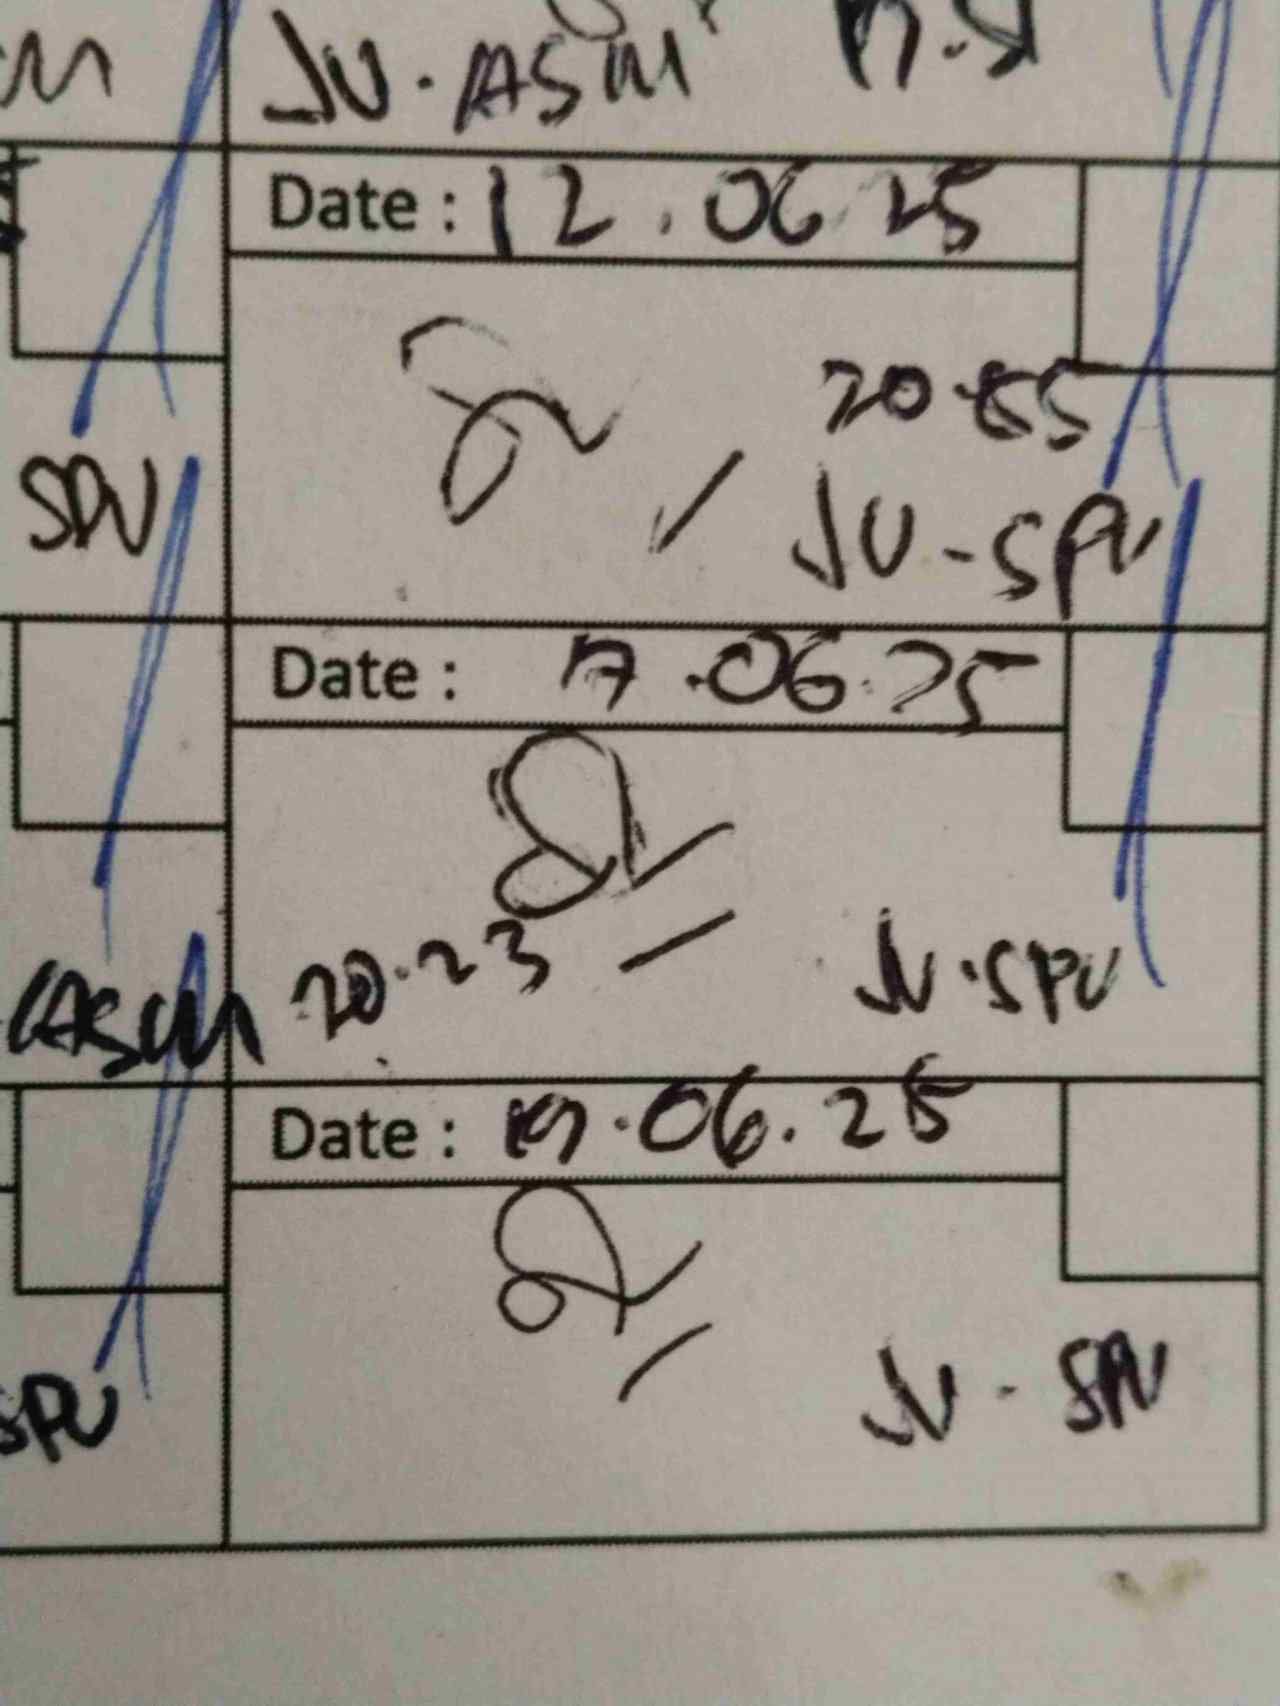 JV. ASM
Date : 12.06 25
20.55
SPV
JV - SPV
Date : 17.06.25
20.23
JV.SPV
ASM
Date : 19.06.25
JV - SPV
SPV